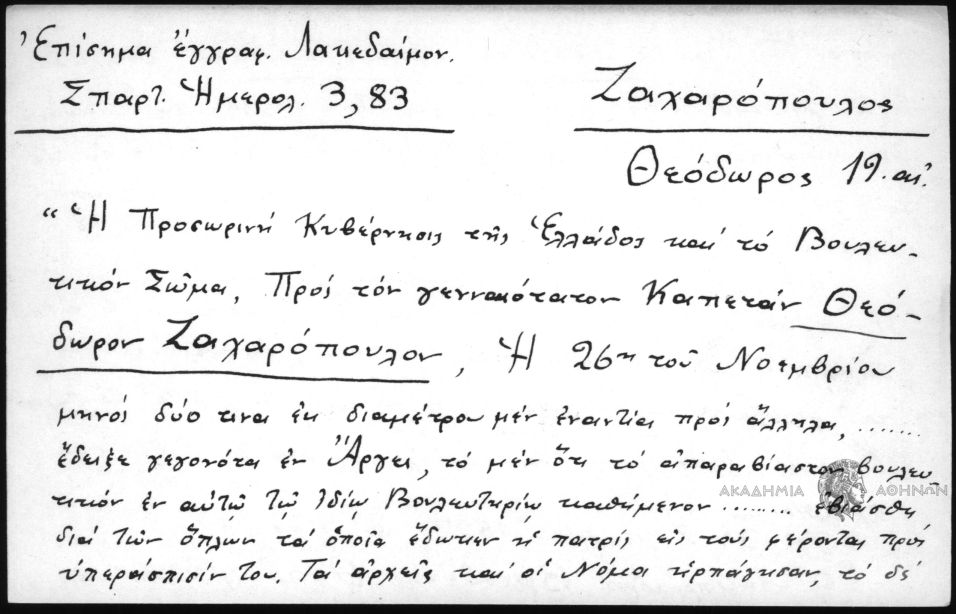 Ἐπίσημα ἔγγραφ. Λακεδαίμον.
Σπαρτ. Ἡμερολ. 3, 83
Ζαχαρόπουλος
Θεόδωρος 19. αἰ.
"Ἡ Προσωρινή Κυβέρνησις τῆς Ἑλλάδος καί τό Βουλευ-
τικόν Σῶμα, Πρός τόν γενναιότατον Καπετάν Θεό-
δωρον Ζαχαρόπουλον, Ἡ 26η τοῦ Νοεμβρίου
μηνός δύο τινα ἐκ διαμέτρου μέν ἐναντία πρός ἄλληλα, ........
ἔδειξε γεγονότα ἐν Ἄργει, τό μέν ὅτι τό ἀπαραβίαστον βουλευ
τικόν ἐν αὐτῷ τῷ ἰδίῳ Βουλευτηρίῳ καθήμενον ......... ἐβιάσθη
διά τῶν ὅπλων τά ὁποῖα ἔδωκεν ἡ πατρίς εἰς τούς φέροντας πρός
ὑπεράσπισίν του. Τά ἀρχεῖα καί οἱ Νόμοι ἡρπάγησαν, τό δέ
ΑΚΑΔΗΜΙΑ ΑΘΗΝΩΝ